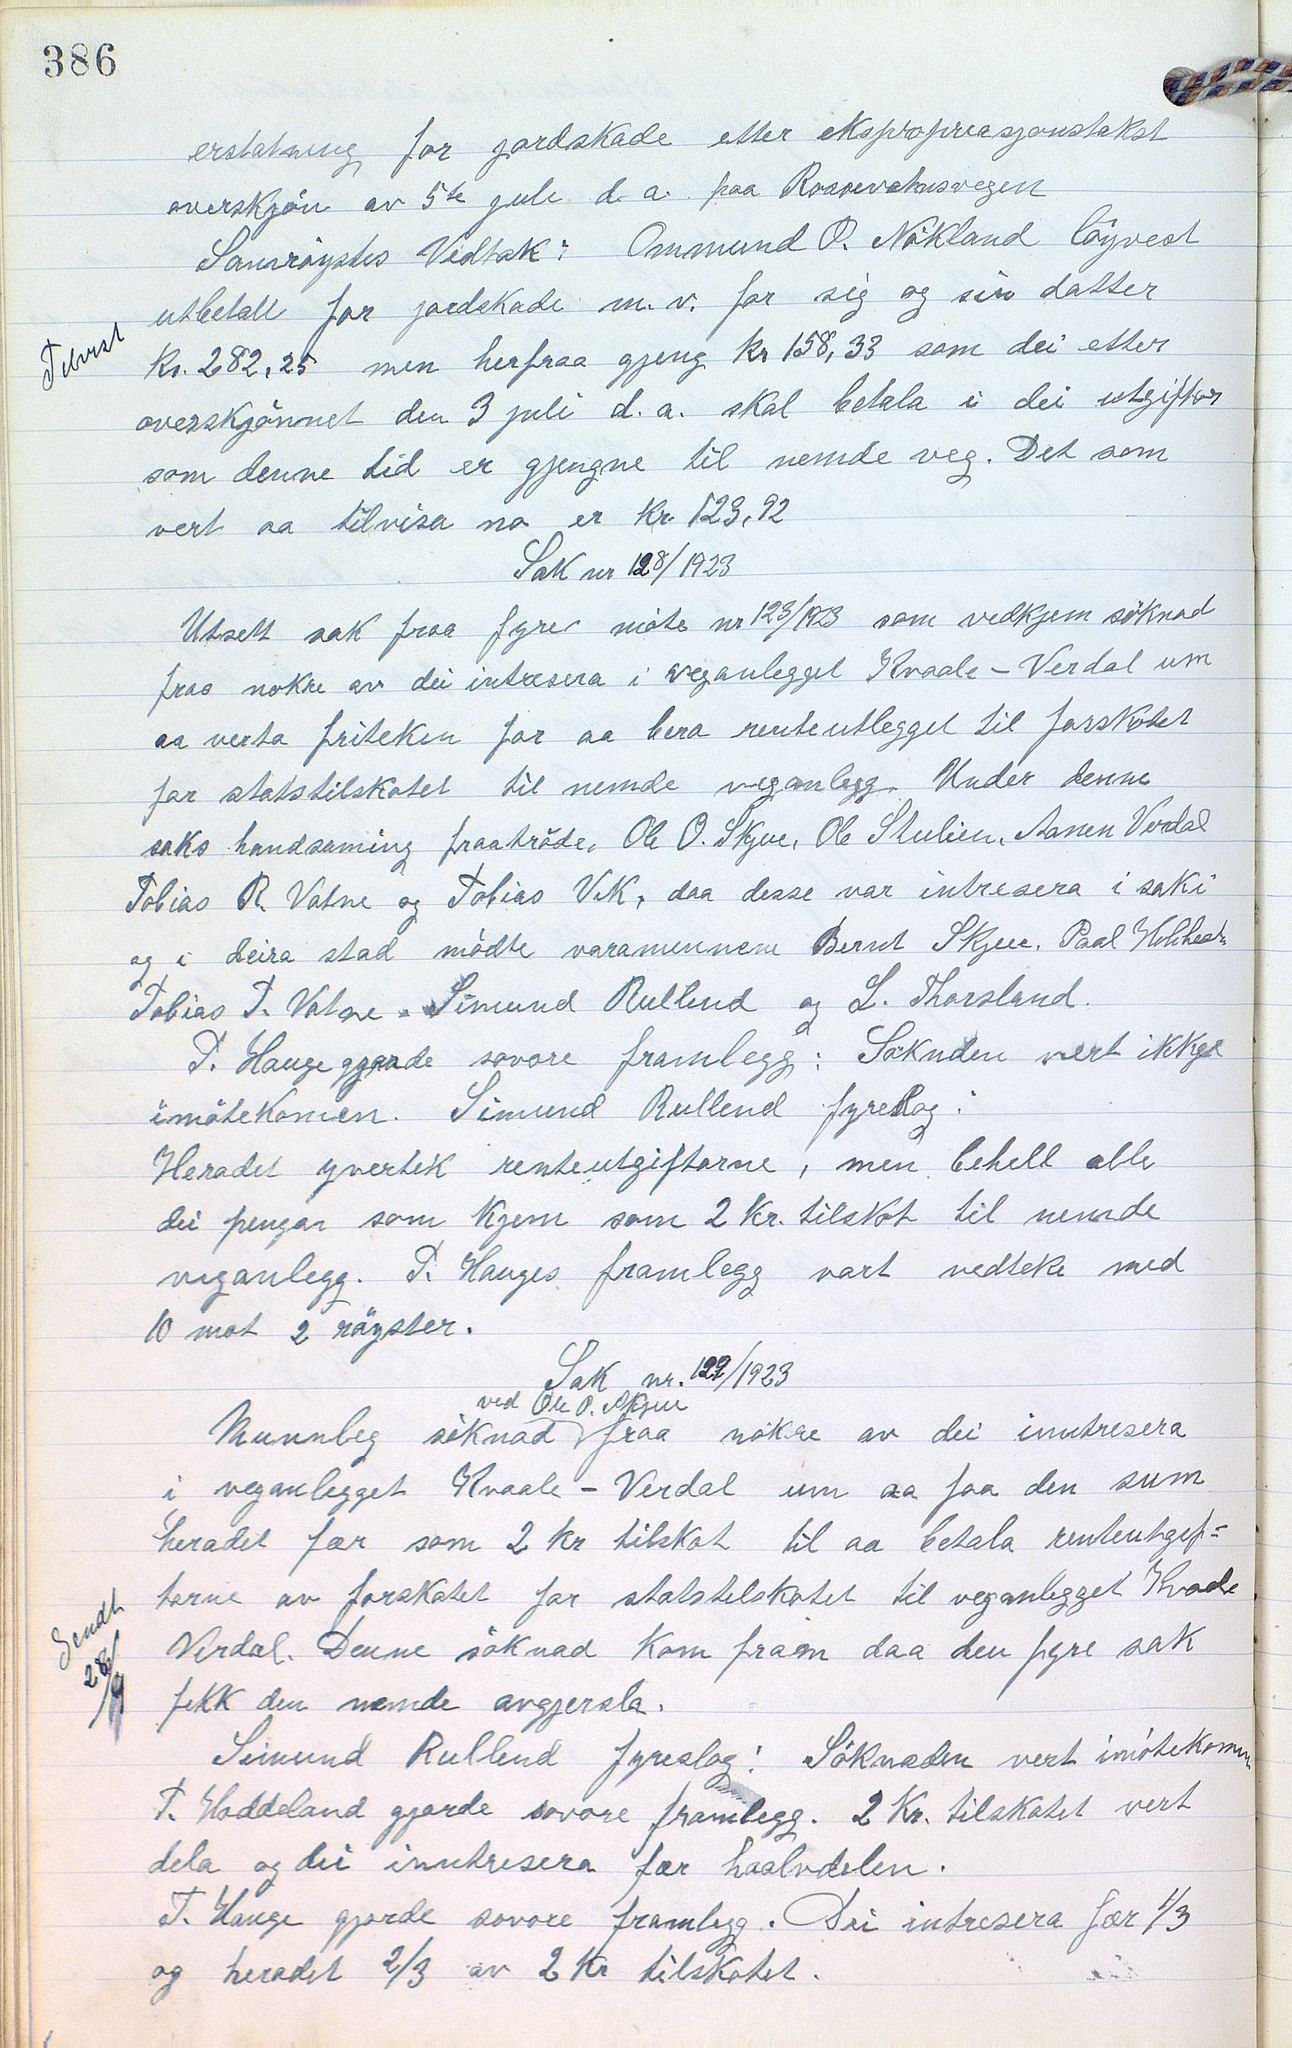 386
erstatning for jordskade etter ekspropriasjonstakst
overskjön av 5te juli d. a. paa
Samröystes Vedtak: Ommund O. Nökland löyvest
utbetalt for jordskade m. v. for sig og sin datter
Tilvist
kr. 282,25 men herfraa gjeng kr 158,33 som dei etter
overskjönnet den 3 juli d. a. skal betala i dei utgiftor
som denne tid er gjengne til nemde veg. Det som
vert aa tilvisa no er kr 123,92
Sak nr 128/1923
Utsett sak fraa fyre möte nr 123/1923 som vedkjem söknad
fraa nokre av dei intresera i veganlegget Kvaale - Verdal um
aa verta friteken for aa bera renteutlegget til forskotet
for statstilskotet til nemde veganlegg. Under denne
saks handsaming fraatrödde, Ole O. Skjue, Ole Stulien, Aanen Verdal
Tobias R. Vatne og Tobias Vik, daa desse var intresera i saki
og i deira stad mödte varamennene Bernt Skjue, Paal
Tobias T. Vatne, Simund Rullend og L. Thorsland.
T. Hauge gjorde sovore framlegg: Söknden vert ikkje
imötekomen. Simund Rullend fyreslog:
Heradet yvertek renteutgiftorne, men behell alle
dei pengar som kjem som 2 kr. tilskot til nemde
veganlegg. T. Hauges framlegg vart vedteke med
10 mot 2 röyster.
Sak nr. 129/1923
ved Ole O. Skjue
Munnleg söknad fraa nokre av dei inntresera
i veganlegget Kvaale - Verdal um aa faa den sum
heradet fær som 2 kr tilskot til aa betala renteutgif=
torne av forskotet for statstilskotet til veganlegget Kvaale
Sendt
28/9
Verdal. Denne söknad kom fram daa den fyre sak
fekk den nemde avgjersla.
Simund Rullend fyreslog: Söknaden vert imötekomen
T. Hoddeland gjorde sovore framlegg. 2 Kr. tilskotet vert
dela og dei inntresera fær haalvdelen.
T. Hauge gjorde sovore framlegg. Dei intresera fær 1/3
og heradet 2/3 av 2 kr tilskotet.